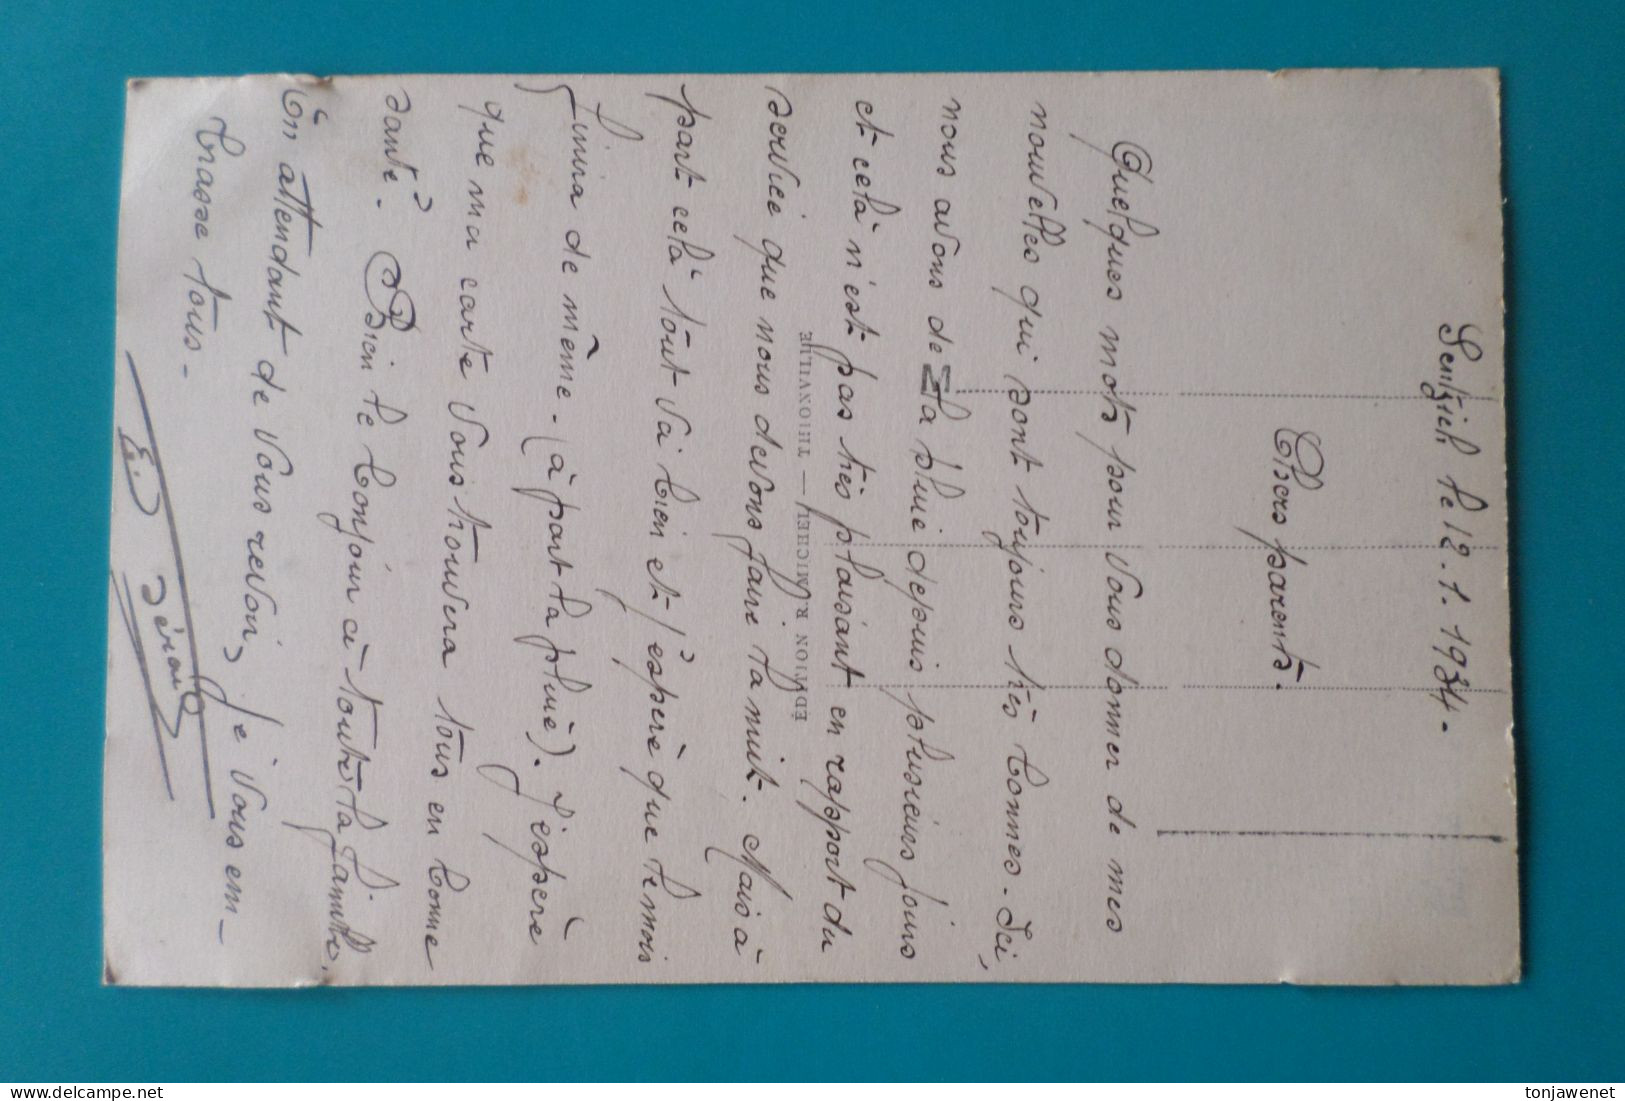 Sentzich le 12.1.1934.
Chers parents.
Quelques mots pour vous donner de mes
nouvelles qui sont toujours très bonnes. Ici,
nous avons de la pluie depuis plusieurs jours
et celà n'est pas très plaisant en rapport du
service que nous devons faire la nuit. Mais à
part celà tout va bien et j'espère que le mois
finira de même. (à part la pluie). J'espère
que ma carte vous trouvera tous en bonne
santé. Bien le bonjour à toute la famille.
En attendant de vous revoir, je vous em-
brasse tous.
E.
ÉDITION R. MICHEL — THIONVILLE
tonjawenet